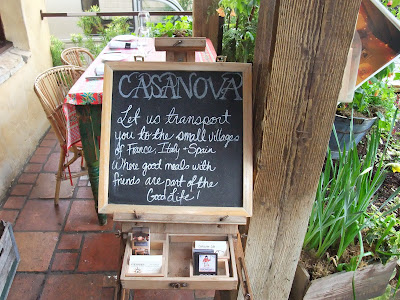 CASANOVA
Let us transport
you to the small villages
of France, Italy + Spain
Where good meals with
friends are part of the
Good Life!